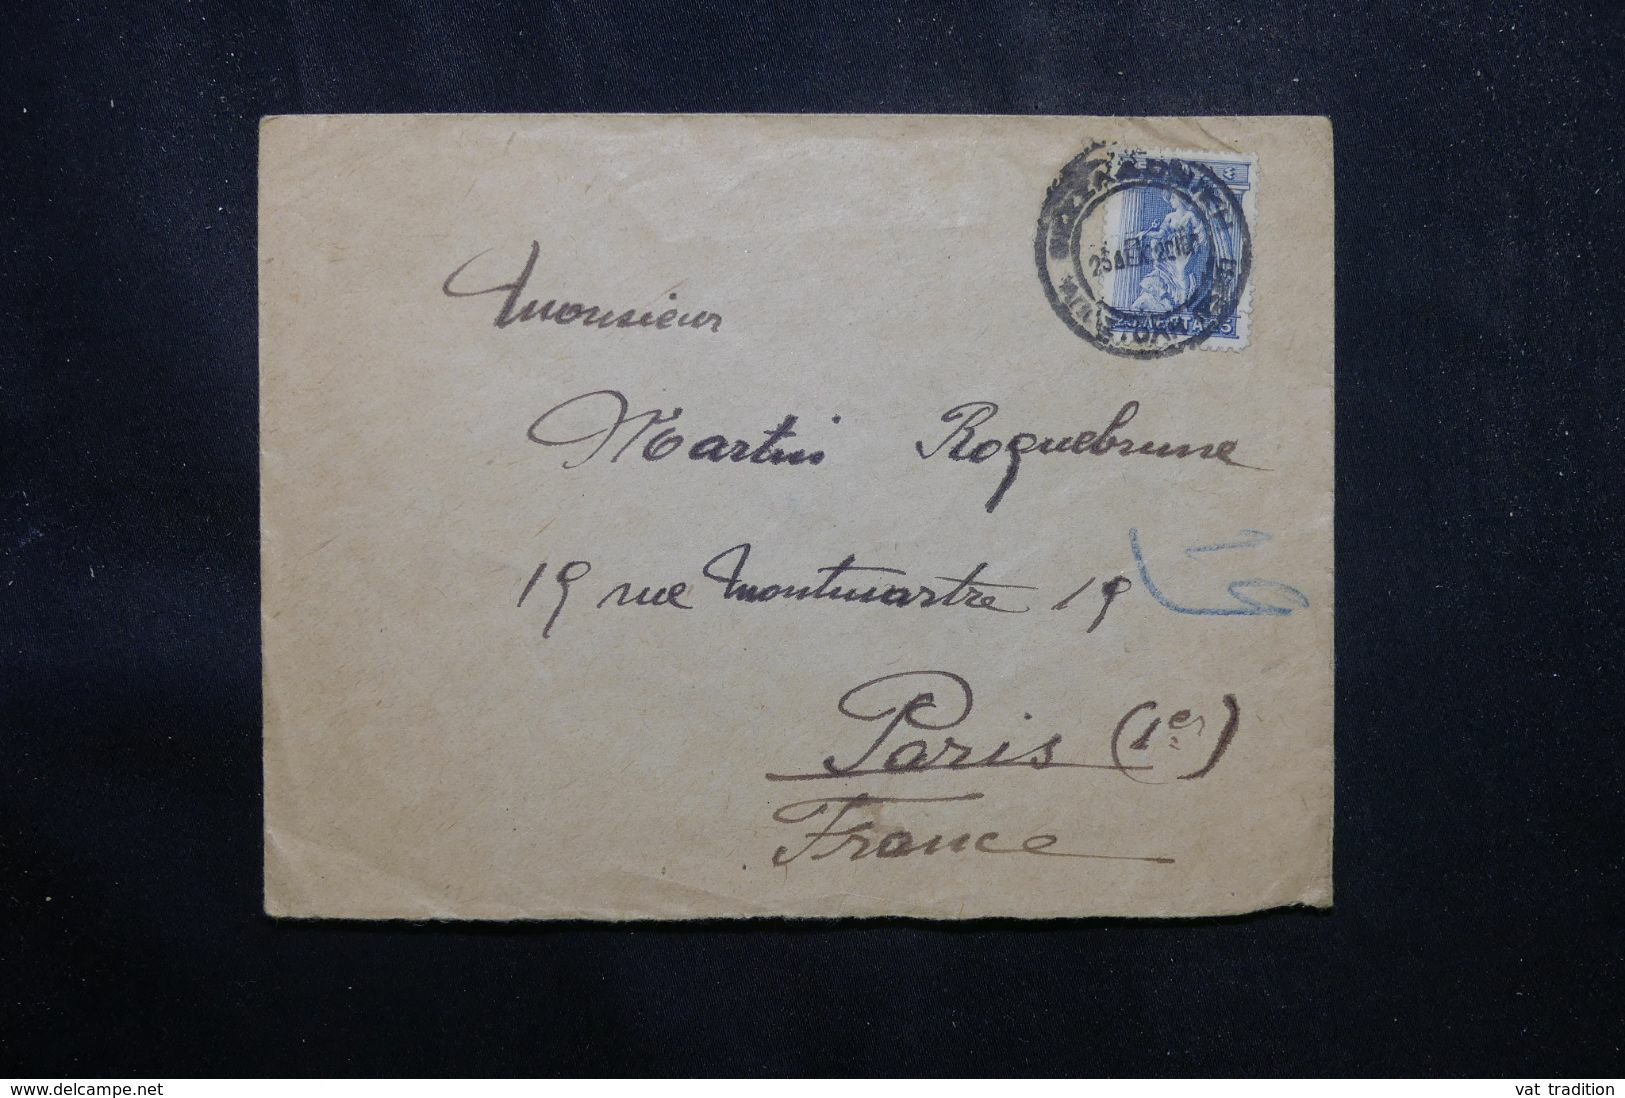 Monsieur
Martin Roquebrune
19 rue Montmartre 19
Paris (1er)
France
25
www.delcampe.net
vat tradition